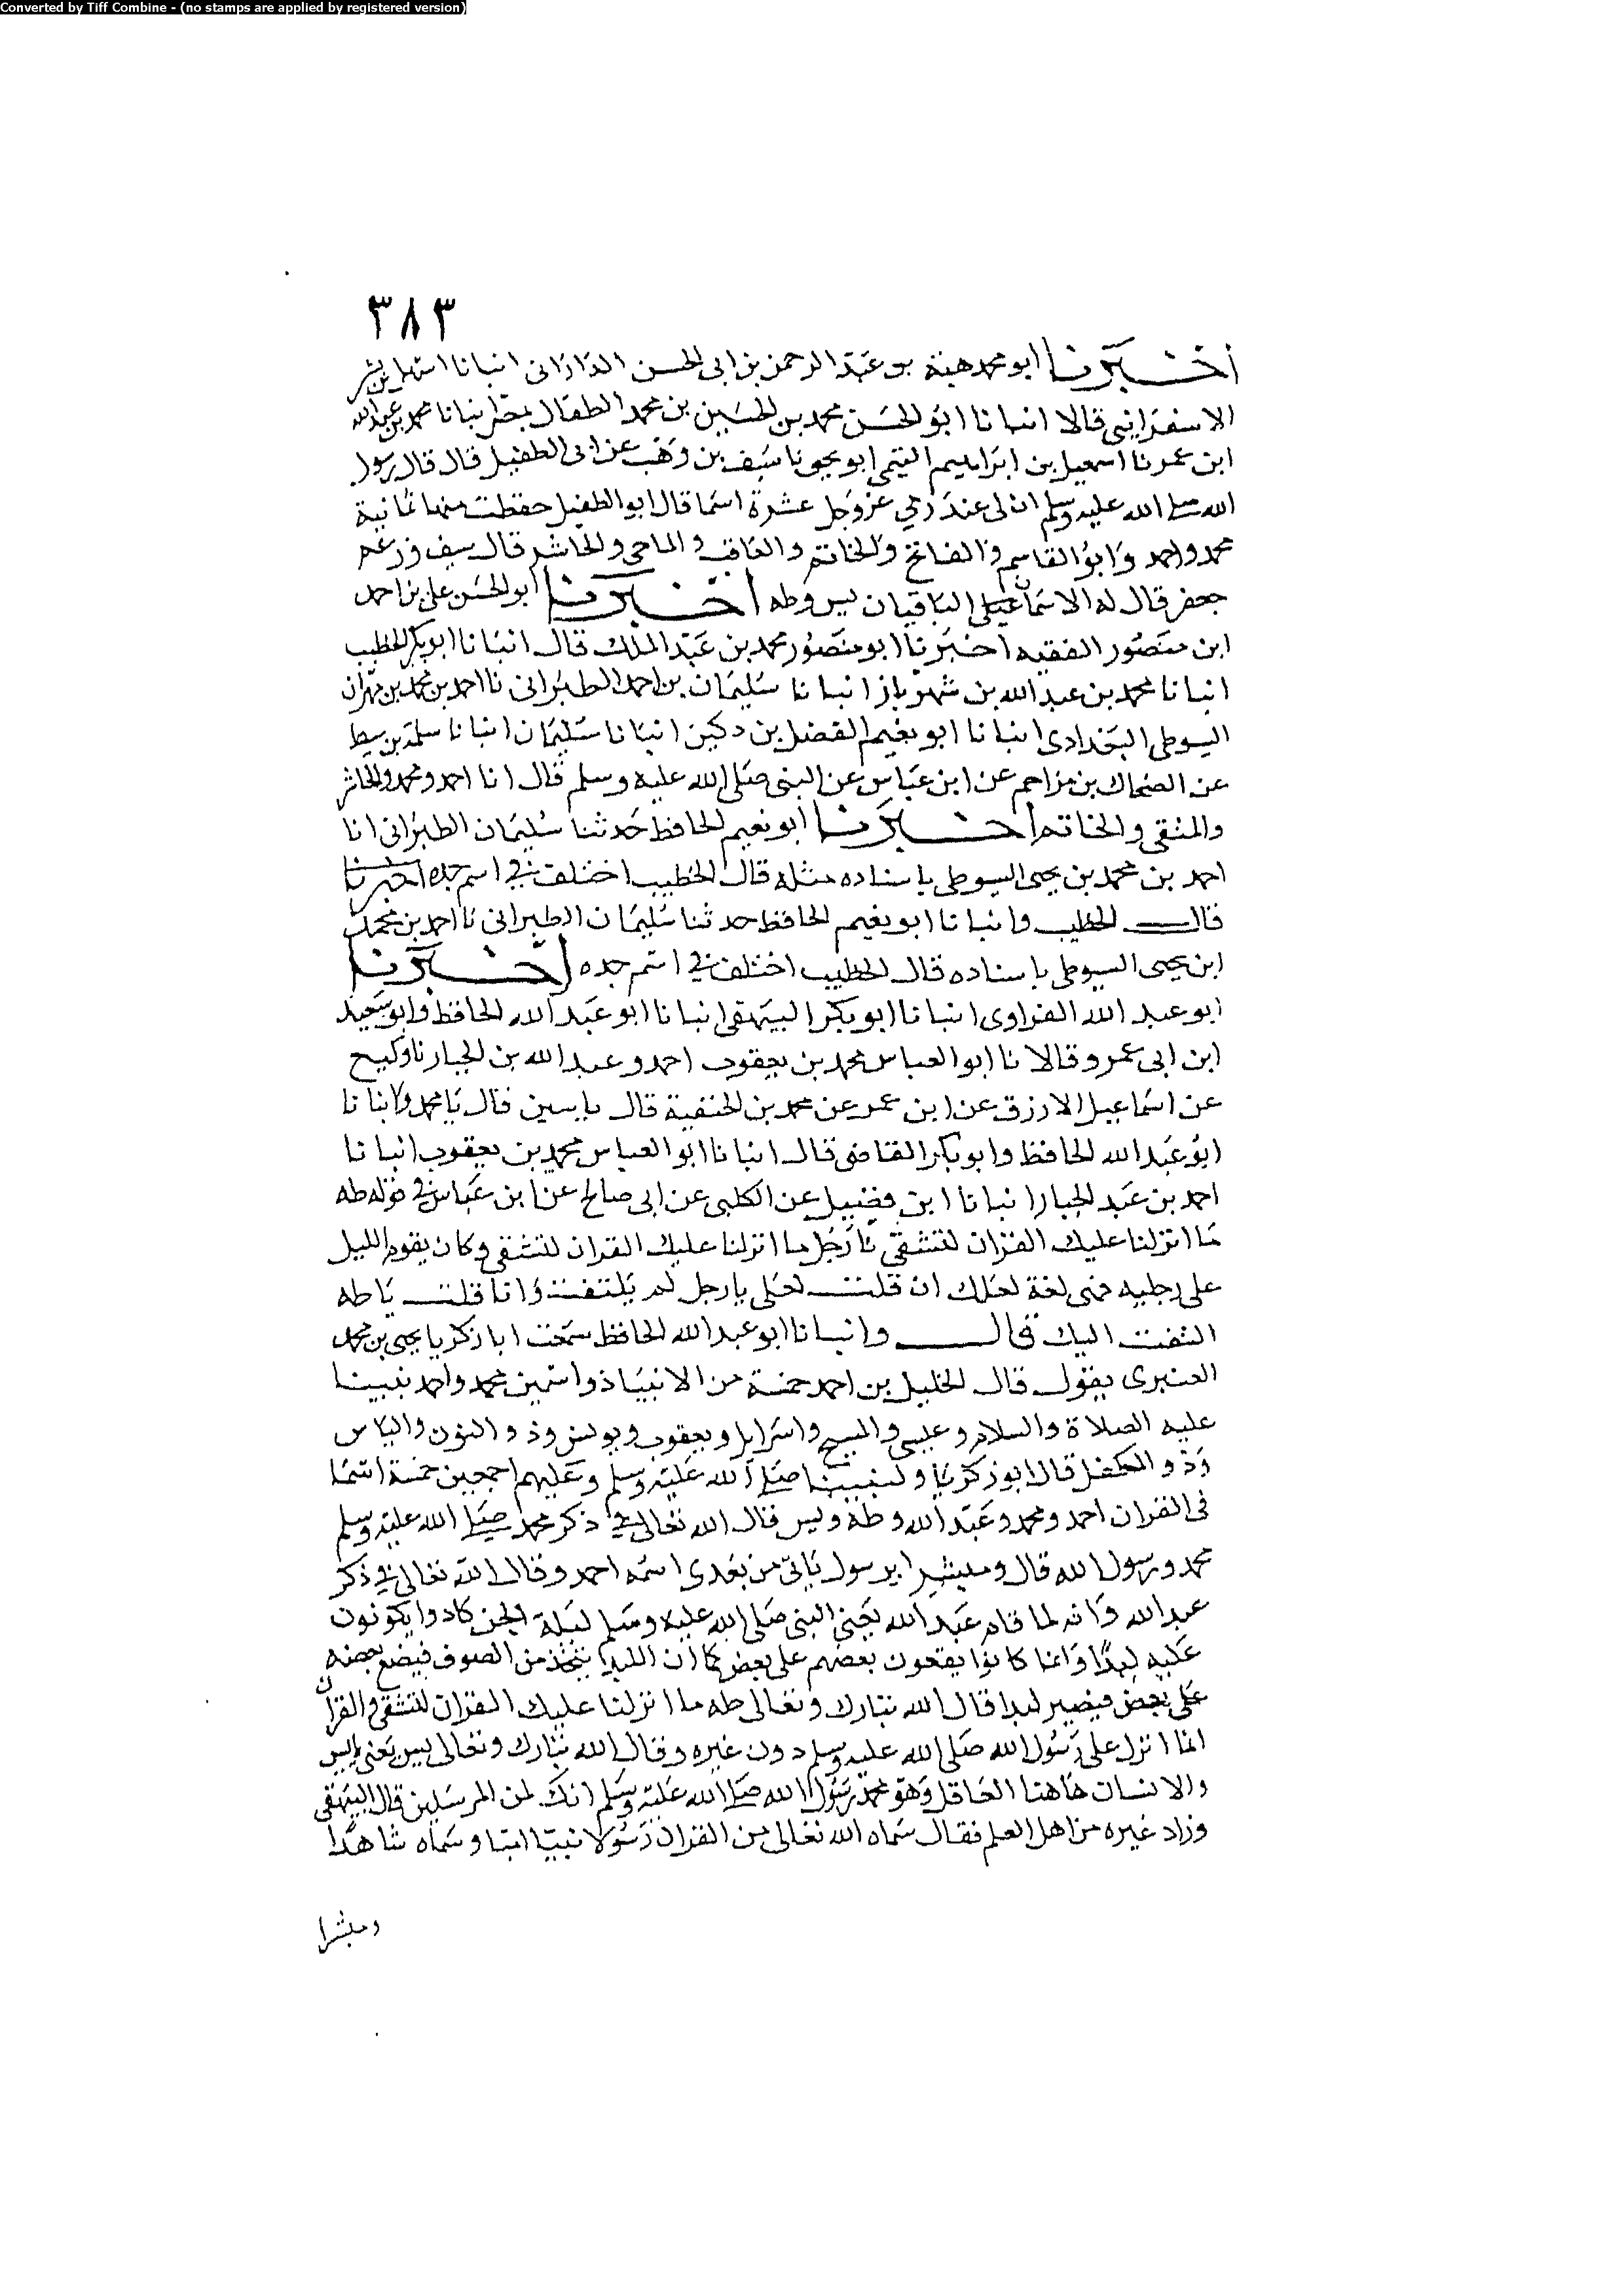 Converted by Tiff Combine - (no stamps are applied by registered version)
٣٨٣
أخبرنا ابو محمد هبة بو عبد الرحمن بن ابى الحسن الدارانى انبانا اسهل بن بشر
الاسفراينى قالا انبانا ابو الحسن محمد بن الحسين بن محمد الطفال بمصر انبانا محمد بن عبد الله
ابن عمرنا اسمعيل بن ابراهيم التيمى ابو يحيى نا سيف بن وهب عن ابى الطفيل قال قال رسول
الله صلى الله عليه وسلم ان لى عند ربي عز وجل عشرة اسما قال ابو الطفيل حفظت منها ثمانية
محمد واحمد وابو القاسم والفاتح والخاتم والعاقب والماحى والحاشر قال سيف وزعم
جعفر قال له الاسمان الباقيان يس وطه اخبرنا ابو الحسن على بن احمد
ابن منصور الفقيه اخبرنا ابو منصور محمد بن عبد الملك قال انبانا ابو بكر الخطيب
انبانا محمد بن عبد الله بن شهريار انبانا سليمان بن احمد الطبرانى نا احمد بن محمد بن مهران
السوطى البغدادى انبانا ابو نعيم الفضل بن دكين انبانا سليمان انبانا سلمة بن نبيط
عن الضحاك بن مزاحم عن ابن عباس عن النبى صلى الله عليه وسلم قال انا احمد ومحمد والحاشر
والمقفى والخاتم اخبرنا ابو نعيم الحافظ حدثنا سليمان الطبرانى انا
احمد بن محمد بن يحيى السوطى باسناده مثله قال الخطيب اختلف في اسم جده اخبرنا
قال الخطيب وانبانا ابو نعيم الحافظ حدثنا سليمان الطبرانى نا احمد بن محمد
ابن يحيى السوطى باسناده قال الخطيب اختلف في اسم جده اخبرنا
ابو عبد الله الفراوى انبانا ابو بكر البيهقى انبانا ابو عبد الله الحافظ وابو سعيد
ابن ابى عمرو قالا نا ابو العباس محمد بن يعقوب احمد وعبد الله بن الجبار نا وكيع
عن اسماعيل الازرق عن ابن عمر عن محمد بن الحنفية قال ياسين قال يا محمد وانبانا
ابو عبد الله الحافظ وابو بكر القاضى قال انبانا ابو العباس محمد بن يعقوب انبانا
احمد بن عبد الجبار انبانا ابن فضيل عن الكلبى عن ابى صالح عن ابن عباس في قوله طه
ما انزلنا عليك القران لتشقى يا رجل ما انزلنا عليك القران لتشقى وكان يقوم الليل
على رجليه فهى لغة لعك ان قلت لعكى يا رجل لم يلتفت واذا قلت يا طه
التفت اليك قال وانبانا ابو عبد الله الحافظ سمعت ابا زكريا يحيى بن محمد
العنبرى يقول قال الخليل بن احمد خمسة من الانبيا ذو اسمين محمد واحمد نبينا
عليه الصلاة والسلام وعيسى والمسيح واسرايل ويعقوب ويونس وذو النون والياس
وذو الكفل قال ابو زكريا ولنبينا صلى الله عليه وسلم وعليهم اجمعين خمسة اسما
فى القران احمد ومحمد وعبد الله وطه ويس قال الله تعالى في ذكر محمد صلى الله عليه وسلم
محمد رسول الله قال ومبشرا برسول ياتى من بعدى اسمه احمد وقال الله تعالى في ذكر
عبد الله وانه لما قام عبد الله يعنى النبى صلى الله عليه وسلم ليلة الجن كادوا يكونون
عليه لبدا وانما كانوا يقعون بعضهم على بعض كما ان اللبد يتخذ من الصوف فيضع بعضه
على بعض فيصير لبدا قال الله تبارك وتعالى طه ما انزلنا عليك القران لتشقى والقران
انما انزل على رسول الله صلى الله عليه وسلم دون غيره وقال الله تبارك وتعالى يس يعنى يا يس
والانسان هاهنا العاقل وهو محمد رسول الله صلى الله عليه وسلم انك لمن المرسلين قال البيهقى
وزاد غيره من اهل العلم فقال سماه الله تعالى من القران رسولا نبيا اميا وسماه شاهدا
ومبشرا